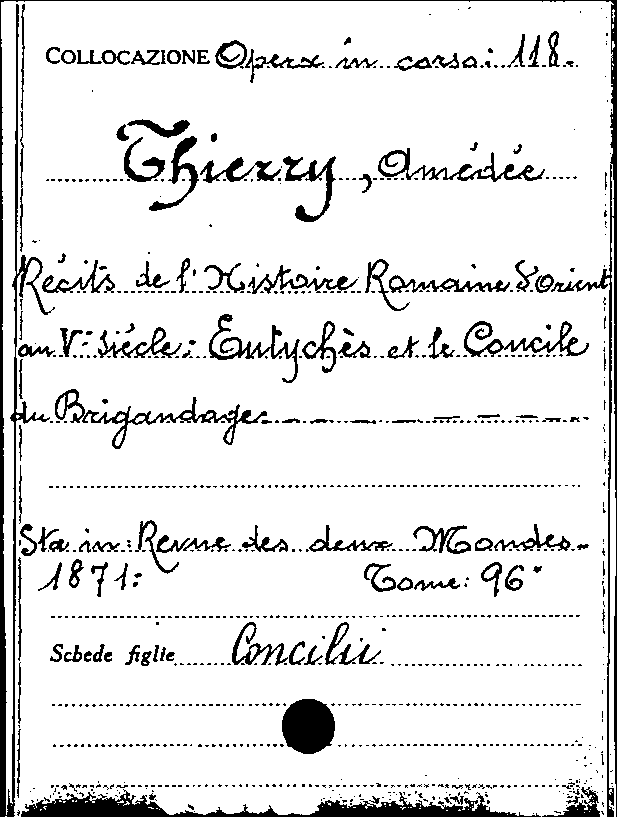 COLLOCAZIONE Opera in corso: 118.
Thierry, Amédée
Récits de l'Histoire Romaine d'Orient
au Ve Siécle: Eutychès et le Concile
du Brigandage.
Sta in: Revue des deux Mondes.
1871: Tome: 96°
Schede figlie Concilii